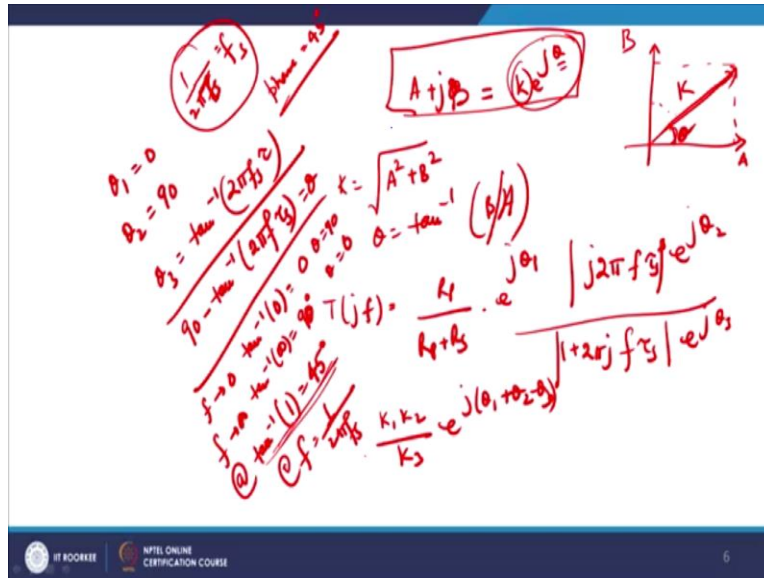 1/2πτs = fs
phase = 45°
A + jB = (k)e^jθ
B
K
θ
A
θ1 = 0
θ2 = 90
θ3 = tan⁻¹(2πfτs)
90 - tan⁻¹(2πfτs) = θ
K = √A² + B²
θ = tan⁻¹(B/A)
f→0 tan⁻¹(0) = 0 θ=90
f→∞ tan⁻¹(∞) = 90° θ=0
@ tan⁻¹(1) = 45°
@ f = 1/2πτs
T(jf) = Rp/Rp+Rs · e^jθ1 |j2πfτs| e^jθ2 / |1+2πjfτs| e^jθ3
K1K2/K3 e^j(θ1+θ2-θ3)
IT ROORKEE
NPTEL ONLINE
CERTIFICATION COURSE
6